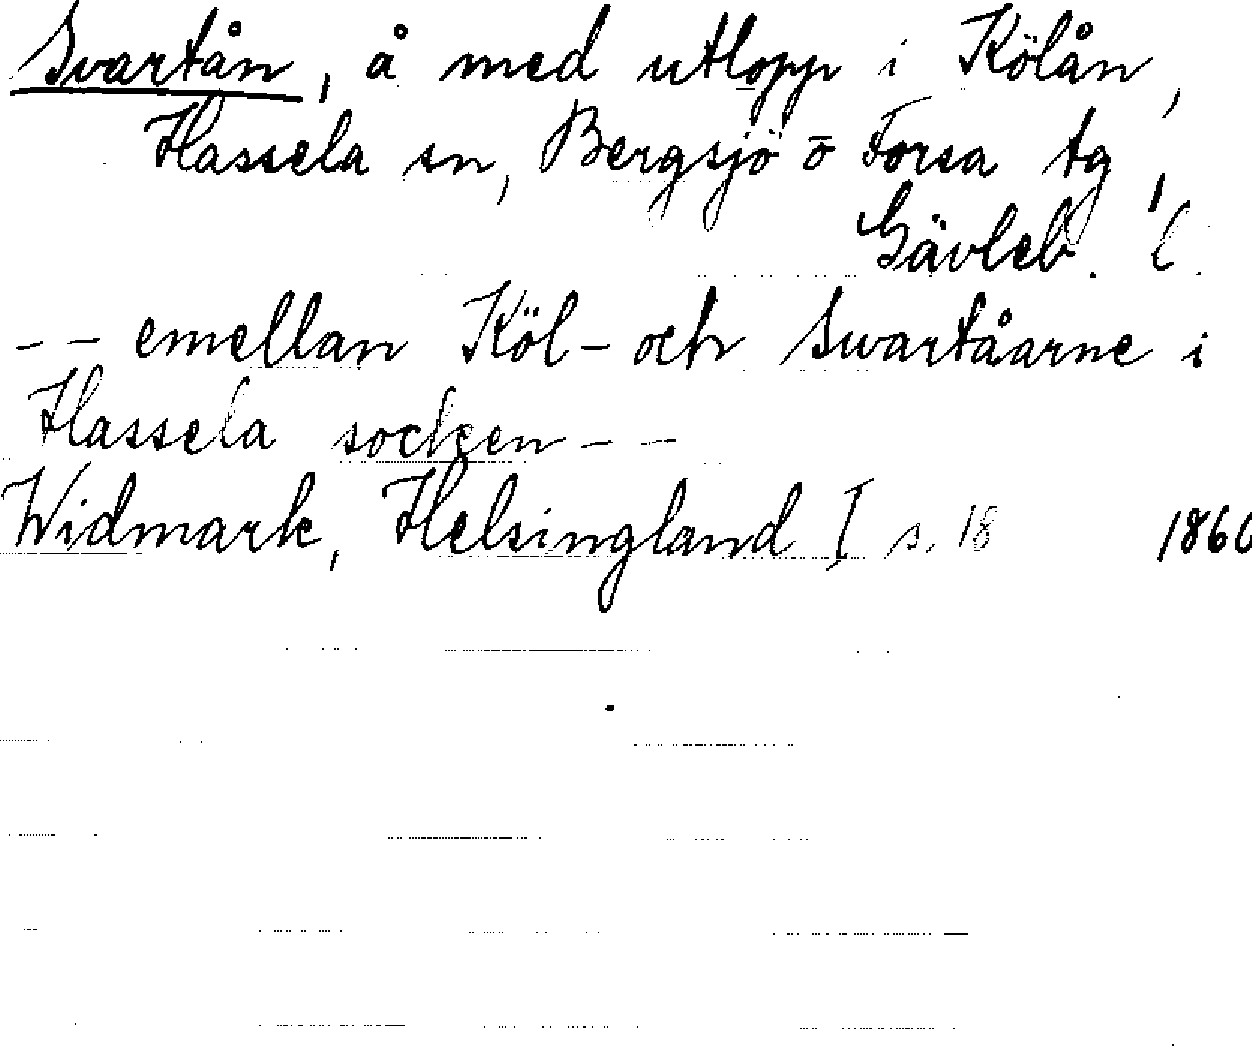 Svartån, å med utlopp i Kölån,
Hassela sn, Bergsjö o Forsa tg,
Gävleb. l.
-- emellan Köl- och Swartåarne i
Hassela socken --
Widmark, Helsingland I s. 18 1860